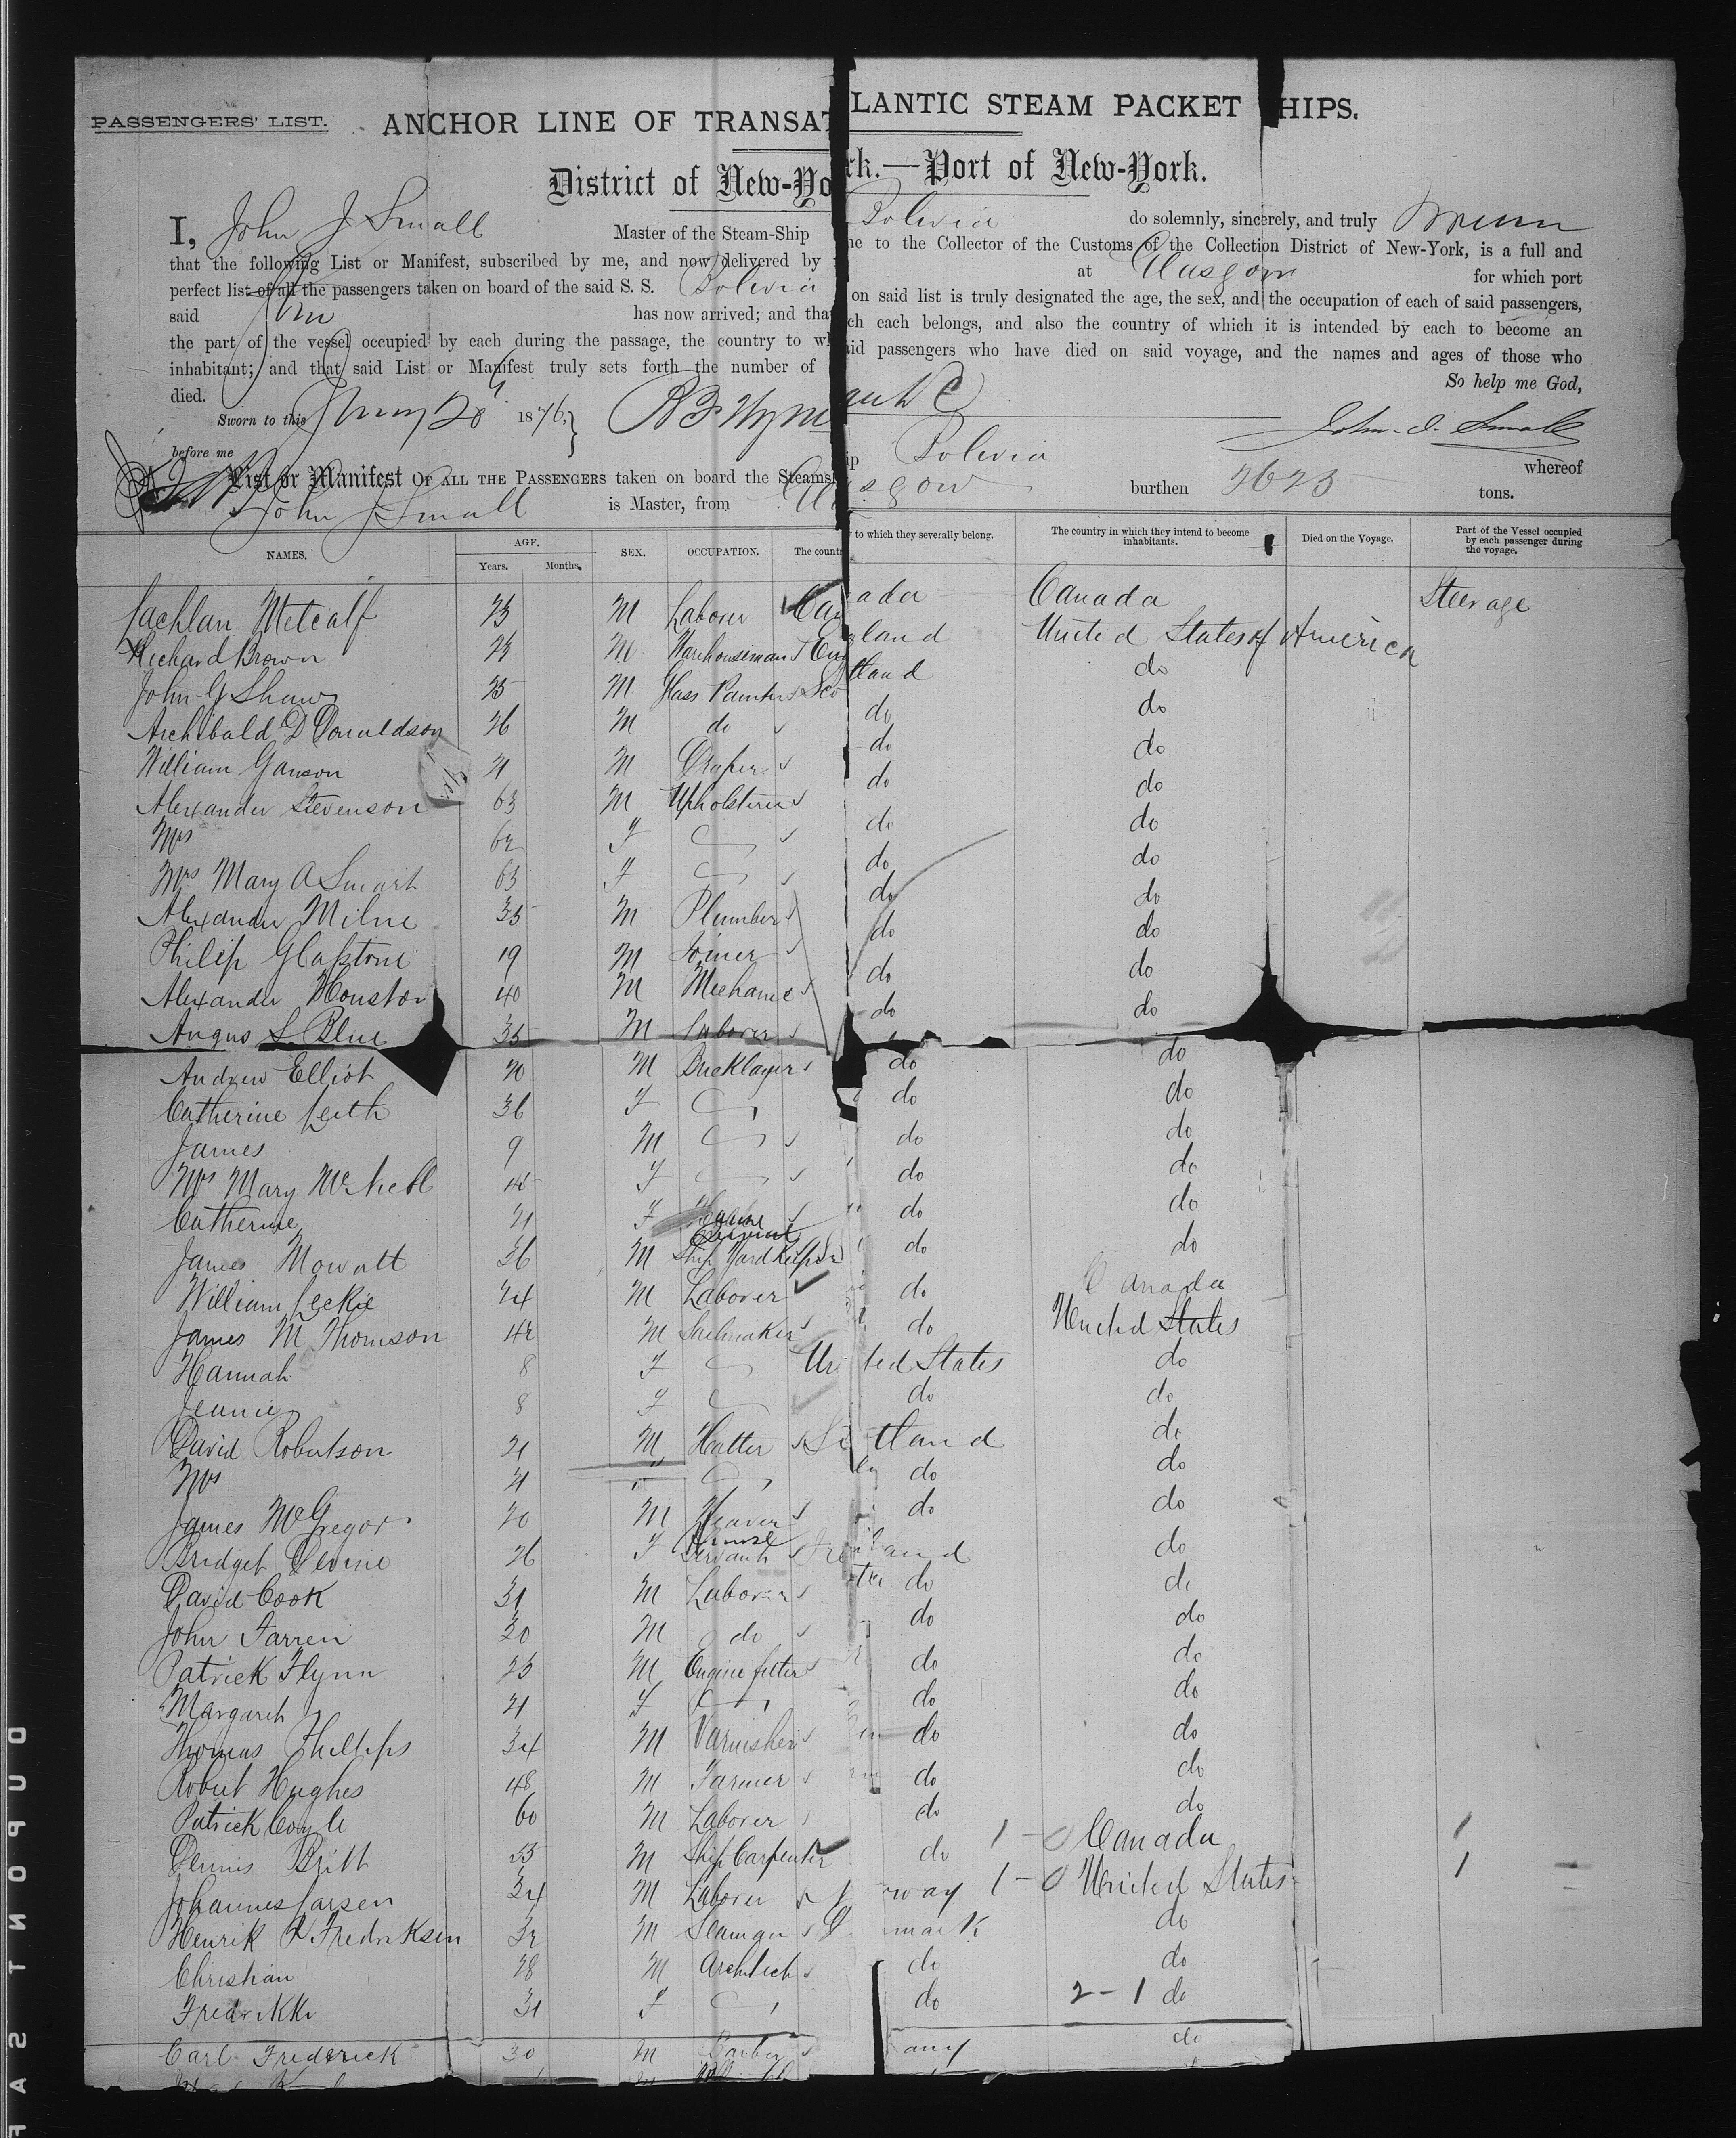 PASSENGERS' LIST. ANCHOR LINE OF TRANSATLANTIC STEAM PACKET SHIPS.
District of New-York.—Port of New-York.
I, John J Small Master of the Steam-Ship Bolivia do solemnly, sincerely, and truly
that the following List or Manifest, subscribed by me, and now delivered by me to the Collector of the Customs of the Collection District of New-York, is a full and
perfect list of all the passengers taken on board of the said S. S. Bolivia at Glasgow for which port
said has now arrived; and that on said list is truly designated the age, the sex, and the occupation of each of said passengers,
the part of the vessel occupied by each during the passage, the country to which each belongs, and also the country of which it is intended by each to become an
inhabitant; and that said List or Manifest truly sets forth the number of said passengers who have died on said voyage, and the names and ages of those who
died. So help me God,
Sworn to this 20 1876, John. J. Small
before me
List or Manifest OF ALL THE PASSENGERS taken on board the Steamship Bolivia whereof
John J Small is Master, from Glasgow burthen 2625 tons.
NAMES. AGE. Years. Months. SEX. OCCUPATION. The country to which they severally belong. The country in which they intend to become inhabitants. Died on the Voyage. Part of the Vessel occupied by each passenger during the voyage.
Lachlan Metcalf 23 M Laborer Canada Canada Steerage
Richard Brown 23 M Warehouseman England United States of America
John G Shaw 25 M Glass Painter Scotland do
Archibald D Donaldson 26 M do do do
William Ganson 21 M Draper do do
Alexander Stevenson 63 M Upholsterer do do
Mrs 62 F do do
Mrs Mary A Smart 63 F do do
Alexander Milne 35 M Plumber do do
Philip Glasstone 19 M Joiner do do
Alexander Houston 40 M Mechanic do do
Angus S Blue 35 M Laborer do do
Andrew Elliot 20 M Bricklayer do do
Catherine Leith 36 F do do
James 9 M do do
Mrs Mary McNeill 45 F do do
Catherine 21 F House Servant do do
James Mowatt 36 M Ship Yard Keeper do do
William Leckie 24 M Laborer do Canada
James M Thomson 42 M Sailmaker do United States
Hannah 8 F United States do
Jeanie 8 F do do
David Robertson 21 M Hatter Scotland do
Mrs 21 do do
James McGregor 20 M Weaver do do
Bridget Devine 26 F House Servant Ireland do
David Cook 31 M Laborer do do
John Farren 20 M do do do
Patrick Flynn 23 M Engine fitter do do
Margaret 21 F do do
Thomas Phillips 34 M Varnisher do do
Robert Hughes 48 M Farmer do do
Patrick Coyle 60 M Laborer do do
Dennis Britt 55 M Ship Carpenter do 1-0 Canada 1
Johannes Larsen 34 M Laborer Norway 1-0 United States 1
Henrik Fredriksen 32 M Denmark do
Christian 28 M Architect do do
Fredrikke 31 F do 2-1 do
Carl Frederick 30 M any do
DUPONT SAF